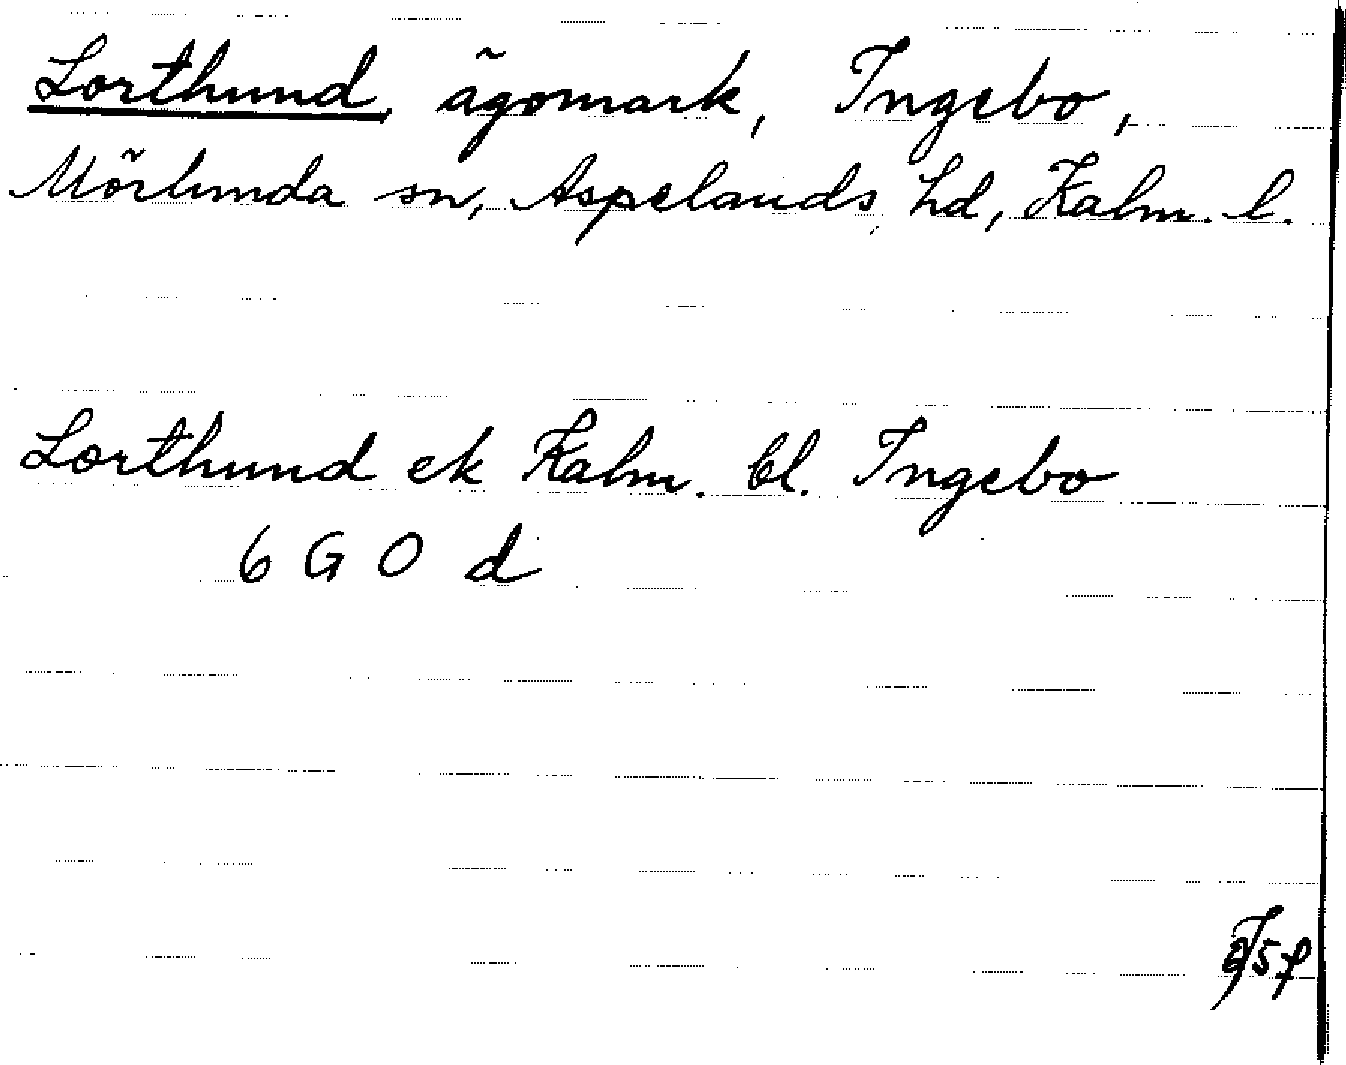 Lorthund, ägomark, Ingebo,
Mörlunda sn, Aspelands hd, Kalm. l.
Lorthund ek Kalm. bl. Ingebo
6 G O d